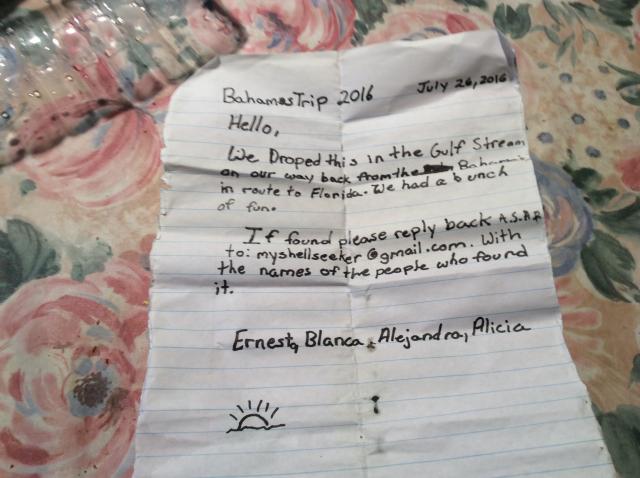 Bahamas Trip 2016 July 26, 2016
Hello,
We Droped this in the Gulf Stream
on our way back from the Bahamas
in route to Florida. We had a bunch
of fun.
If found please reply back A.S.A.P
to: myshellseeker@gmail.com. With
the names of the people who found
it.
Ernesto, Blanca, Alejandra, Alicia